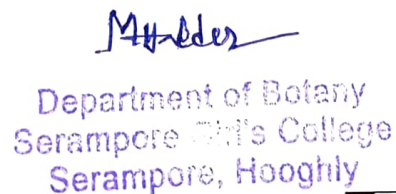 Department of Botany
Serampore Girl's College
Serampore, Hooghly